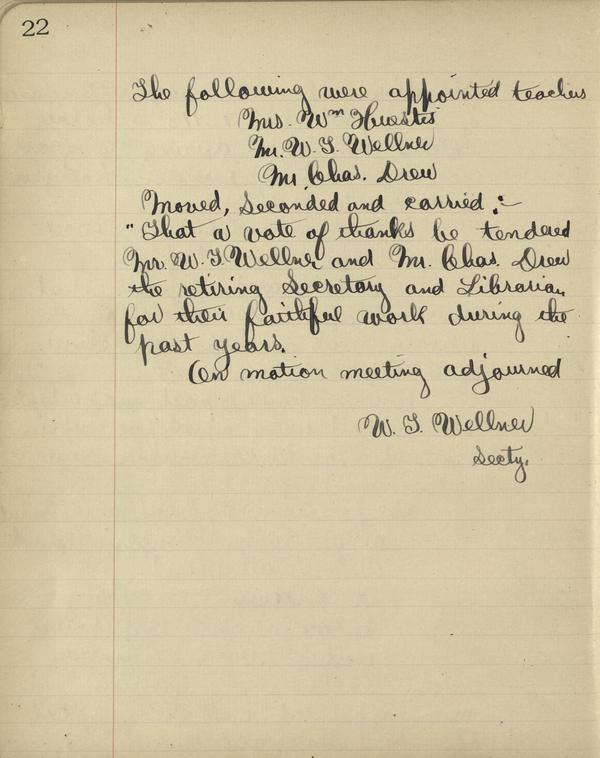 22
The following were appointed teachers
Mrs. Wm Huestis
Mr. W. T. Wellner
Mr. Chas. Drew
Moved, Seconded and carried:-
"That a vote of thanks be tendered
Mr. W. T Wellner and Mr. Chas. Drew
the retiring Secretary and Librarian
for their faithful work during the
past years.
On motion meeting adjourned
W. T. Wellner
Secty.